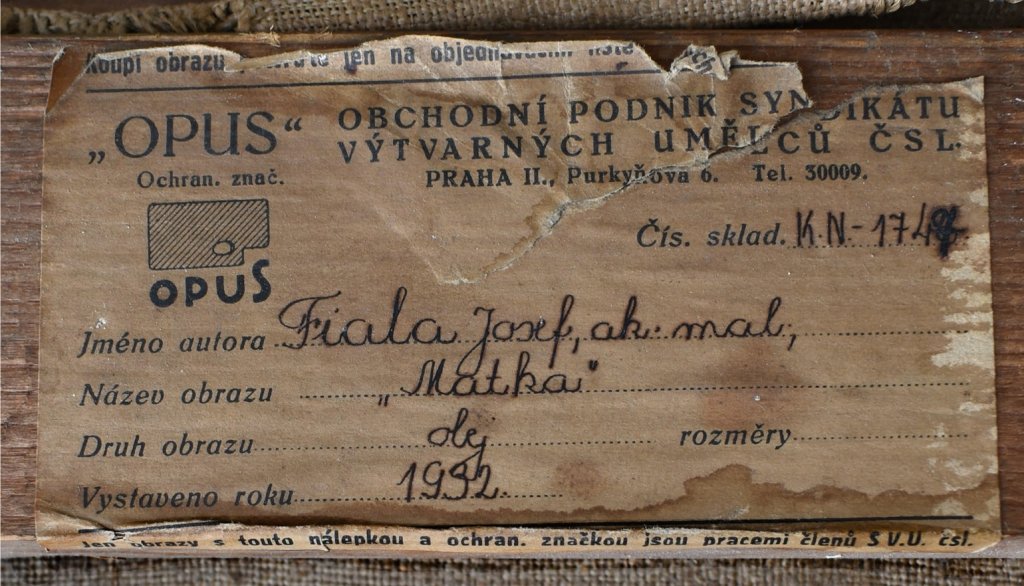 Koupi obrazu jen na objednávacím listě
„OPUS“
Ochran. znač.
OBCHODNÍ PODNIK SYNDIKÁTU
VÝTVARNÝCH UMĚLCŮ ČSL.
PRAHA II., Purkyňova 6. Tel. 30009.
OPUS
Čís. sklad. K.N-174
Jméno autora Fiala Josef, ak. mal,
Název obrazu „Matka“
Druh obrazu olej rozměry
Vystaveno roku 1932.
Jen obrazy s touto nálepkou a ochran. značkou jsou pracemi členů S.V.U. čsl.